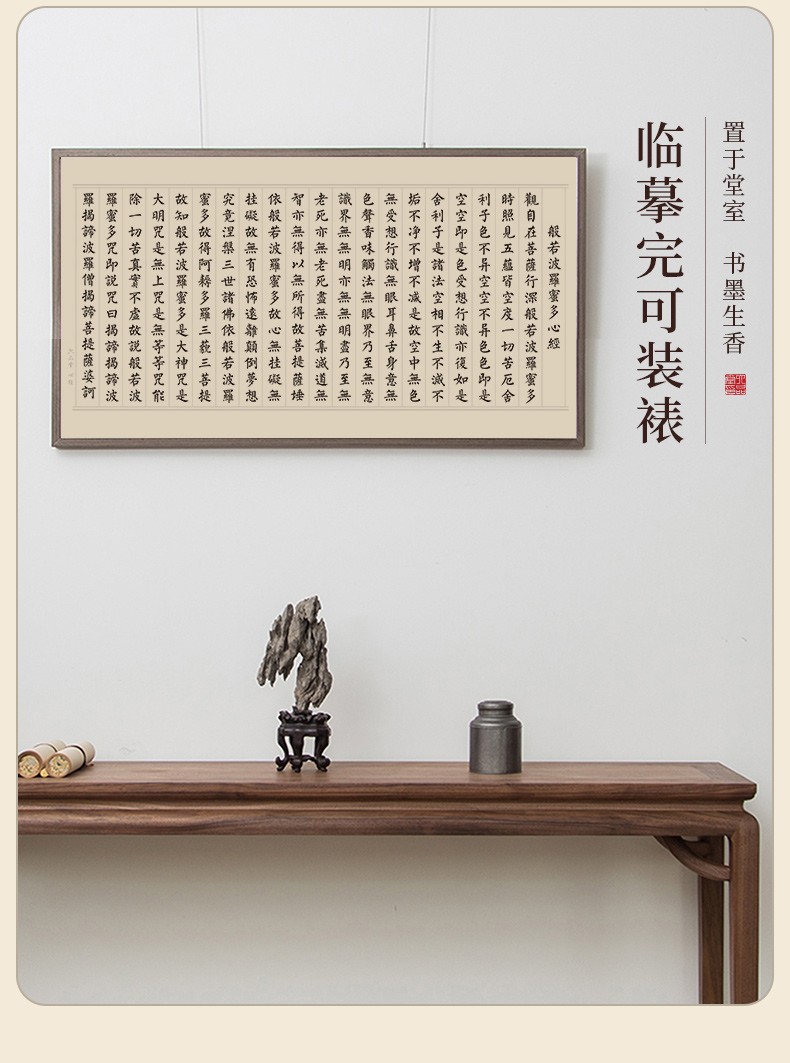 置于堂室 书墨生香
临摹完可装裱
般若波羅蜜多心經
觀自在菩薩行深般若波羅蜜多
時照見五蘊皆空度一切苦厄舍
利子色不异空空不异色色即是
空空即是色受想行識亦復如是
舍利子是諸法空相不生不滅不
垢不净不增不减是故空中無色
無受想行識無眼耳鼻舌身意無
色聲香味觸法無眼界乃至無意
識界無無明亦無無明盡乃至無
老死亦無老死盡無苦集滅道無
智亦無得以無所得故菩提薩埵
依般若波羅蜜多故心無挂礙無
挂礙故無有恐怖遠離顛倒夢想
究竟涅槃三世諸佛依般若波羅
蜜多故得阿耨多羅三藐三菩提
故知般若波羅蜜多是大神咒是
大明咒是無上咒是無等等咒能
除一切苦真實不虛故説般若波
羅蜜多咒即説咒曰揭諦揭諦波
羅揭諦波羅僧揭諦菩提薩婆訶